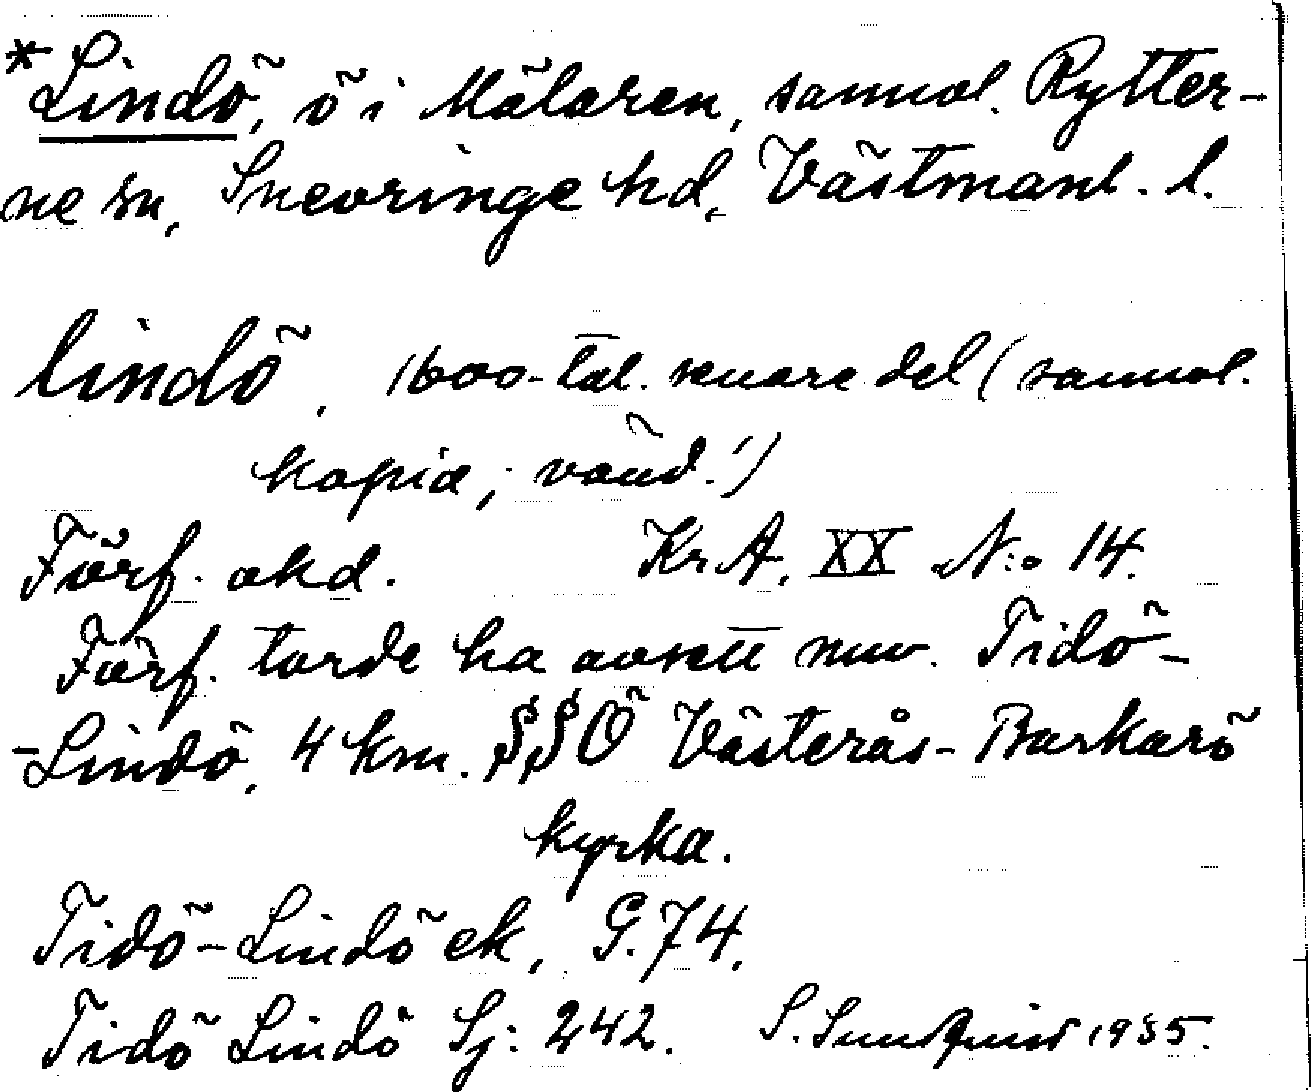 *Lindö, ö i Mälaren, sannol. Rytter-
ne sn, Snevringe hd, Västmanl. l.
lindö, 1600-tal. senare del (sannol.
kopia; vänd!)
Förf. okd. KrA, XX N:o 14.
Förf. torde ha avsett nuv. Tidö-
-Lindö, 4 km. SSÖ Västerås-Barkarö
kyrka.
Tidö-Lindö ek, G.74.
Tidö Lindö Sj: 242. S. Sundquist 1935.